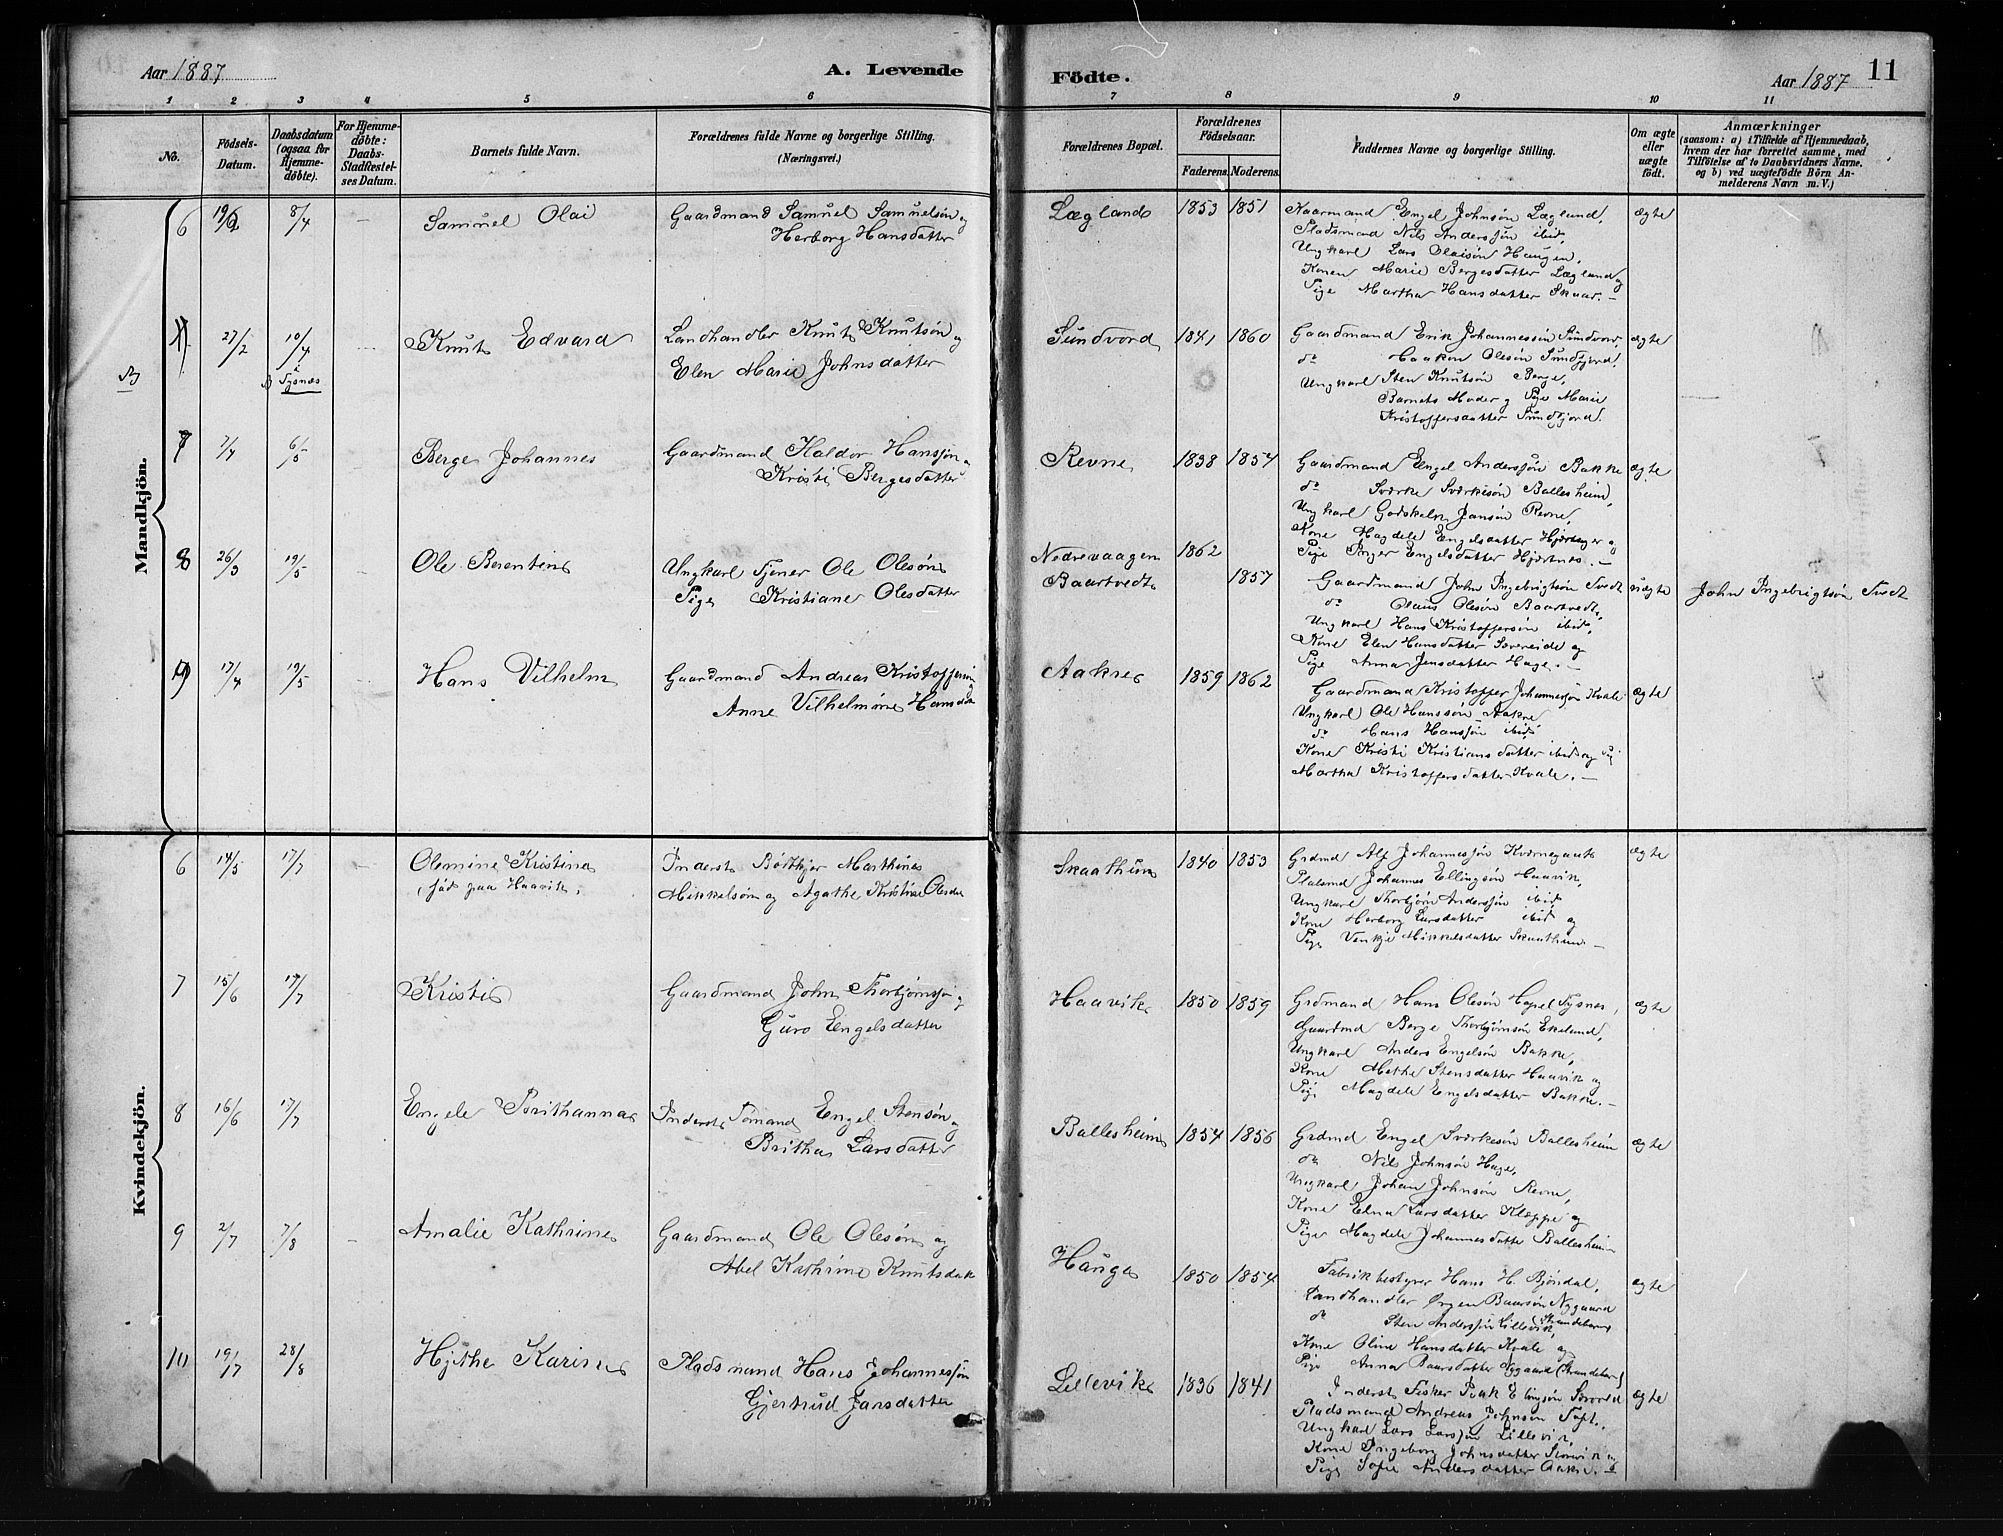 Aar 1887
A. Levende
Födte.
Aar 1887
11
1 2 3 4 5 6 7 8 9 10 11
No.
Födsels-Datum.
Daabsdatum (ogsaa for Hjemme-döbte).
For Hjemme-döbte: Daabs-Stadfæstel-ses Datum.
Barnets fulde Navn.
Forældrenes fulde Navne og borgerlige Stilling. (Næringsvei.)
Forældrenes Bopæl.
Forældrenes Födselsaar.
Faderens. Moderens.
Faddernes Navne og borgerlige Stilling.
Om ægte eller uægte födt.
Anmærkninger
(saasom: a) i Tilfælde af Hjemmedaab, hvem der har forrettet samme, med Tilföielse af to Daabsvidners Navne, og b) ved uægtefödte Börn An-melderens Navn m. V.)
Mandkjön.
6 19/2 8/4 Samuel Olai
Gaardmand Samuel Samuelsön og
Herborg Hansdatter
Lægland 1853 1851
Gaardmand Engel Johnsön Lægland,
Pladsmand Nils Anderssön ibid,
Ungkarl Lars Olaisön Haugen,
Konen Marie Bergesdatter Lægland og
Pige Martha Hansdatter Skaar. –
ægte
27/2 10/4 i Tysnes Knut Edvard
Landhandler Knut Knutsön og
Elen Marie Johnsdatter
Sundvord 1841 1860
Gaardmand Erik Johannessön Sundvor
do Haakon Olesön Sundfjord,
Ungkarl Sten Knutsön Berge,
Barnets Moder og Pige Marie
Kristoffersdatter Sundfjord.
ægte
7 7/4 6/5 Berge Johannes
Gaardmand Haldor Hanssön og
Kristi Bergesdatter
Revne 1838 1854
Gaardmand Engel Anderssön Bakke
do Sværke Sværkesön Ballesheim,
Ungkarl Godskalk Jansön Revne,
Kone Magdele Engelsdatter Hjørtager og
Pige Inger Engelsdatter Hjørtnes. –
ægte
8 26/3 19/5 Ole Berentin
Ungkarl Tjener Ole Olesön
Pige Kristiane Olesdatter
Nedrevaagen 1862
Baartvedt 1857
Gaardmand John Ingebrigtsön Tvedt
do Olaus Olesön Baartvedt,
Ungkarl Hans Kristoffersön ibid,
Kone Elen Hansdatter Sævereide og
Pige Anna Jensdatter Hage. –
uægte
John Ingebrigtsön Tvedt
9 17/4 19/5 Hans Vilhelm
Gaardmand Andreas Kristoffersön og
Anne Vilhelmine Hansdtr
Aakre 1859 1862
Gaardmand Kristoffer Johannessön Kvale
Ungkarl Ole Hanssön Aakre
do Hans Hanssön ibid
Kone Kristi Kristiansdatter ibid og Pig
Martha Kristoffersdatter Kvale. –
ægte
Kvindekjön.
6 14/5 17/7 Olemine Kristine
(född paa Haavik)
Inderst Bödtkjer Marthinus
Mikkelsön og Agathe Kristine Olesdtr
Skaatheim 1840 1853
Grdmd Alf Johannessön Kværnegaut
Pladsmd Johannes Ellingsön Haavik,
Ungkarl Thorbjörn Anderssön ibid
Kone Herborg Larsdatter ibid og
Pige Venkje Mikkelsdatter Skaatheim –
ægte
7 15/6 17/7 Kristi
Gaardmand John Thorbjörnssön og
Guro Engelsdatter
Haavik 1850 1859
Grdmand Hans Olesön Hopel Tysnes,
Gaardmd Berge Thorbjörnsön Ekeland,
Ungkarl Anders Engelsön Bakke,
Kone Mette Stensdatter Haavik og
Pige Magdele Engelsdatter Bakke. –
ægte
8 16/6 17/7 Engele Brithanna
Inderst Sömand Engel Stensön og
Britha Larsdatter
Ballesheim 1854 1856
Grdmd Engel Sværkesön Ballesheim
do Nils Johnsön Hage,
Ungkarl Johan Johnsön Revne,
Kone Edna Larsdatter Kleppe og
Pige Magdele Johannesdatter Ballesheim
ægte
9 2/7 7/8 Amalie Kathrine
Gaardmand Ole Olesön og
Abel Kathrine Knutsdatr
Hauge 1850 1854
Fabrikbestyrer Hans H. Bjöndal,
Landhandler Ørgen Baarsön Nygaard
do Sten Anderssön Lillevik, Strandebarm
Kone Oline Hansdatter Kvale og
Pige Anna Baarsdatter Nygaard (Strandebarm)
ægte
10 19/7 28/8 Hjithe Karine
Pladsmand Hans Johannessön
Gjertrud Jansdatter
Lillevik 1836 1841
Inderst Fisker Isak Elingsön Storvik
Pladsmand Andreas Johnsön Toft.
Ungkarl Lars Larssön Lillevik,
Kone Ingeborg Johnsdatter Storevik og
Pige Sofie Andersdatter Aakre. –
ægte